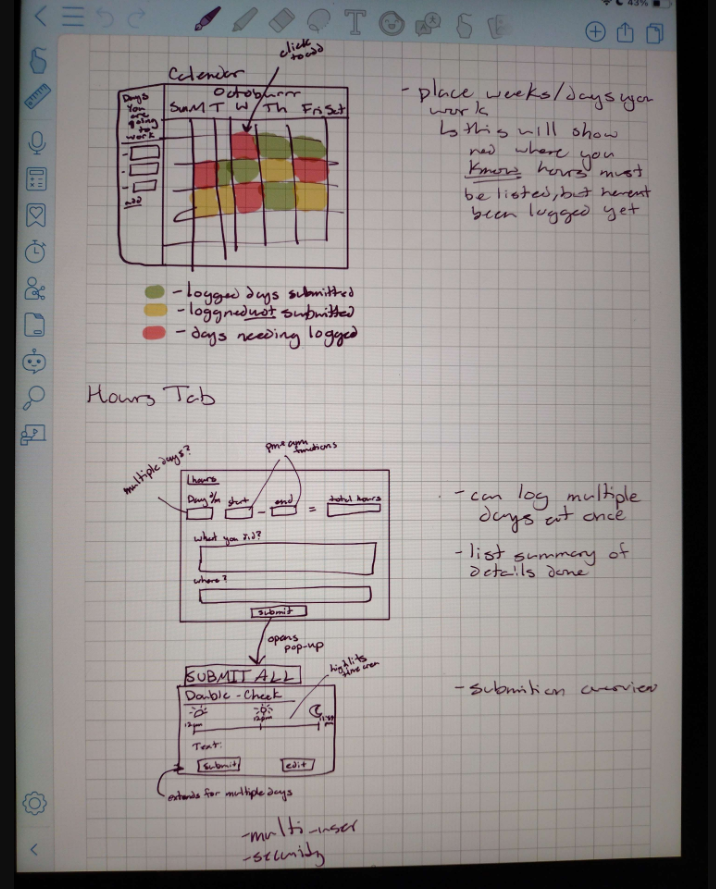 43%
click
to add
Calendar
Octoburrr
Days
you
are
going
to
work
Sun M T W Th Fri Sat
add
- place weeks/days you
work
↳ this will show
red where you
know hours must
be listed, but havent
been logged yet
- logged days submitted
- loggned not submitted
- days needing logged
Hours Tab
multiple days?
functions
hours
Day start - end = total hours
what you did?
where?
submit
opens
pop-up
- can log multiple
days at once
- list summary of
details done
SUBMIT ALL
Double-Check
highlits
12pm
Text:
submit edit
extends for multiple days
- submition overview
- multi-user
- security